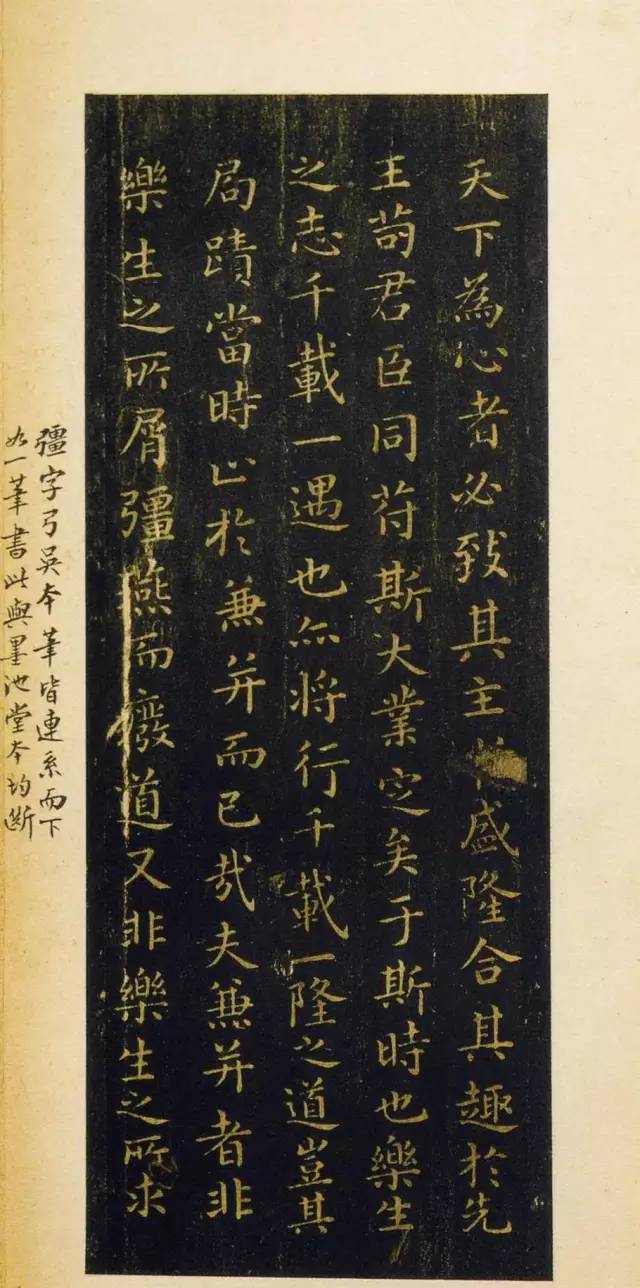 天下為心者必致其主盛隆合其趣於先
王苟君臣同苻斯大業定矣于斯時也樂生
之志千載一遇也亦将行千載一隆之道豈其
局蹟當時止於兼并而已哉夫兼并者非
樂生之所屑彊燕而廢道又非樂生之所求
彊字弓吳本筆皆連系而下
如一筆書此與墨池堂本均斷